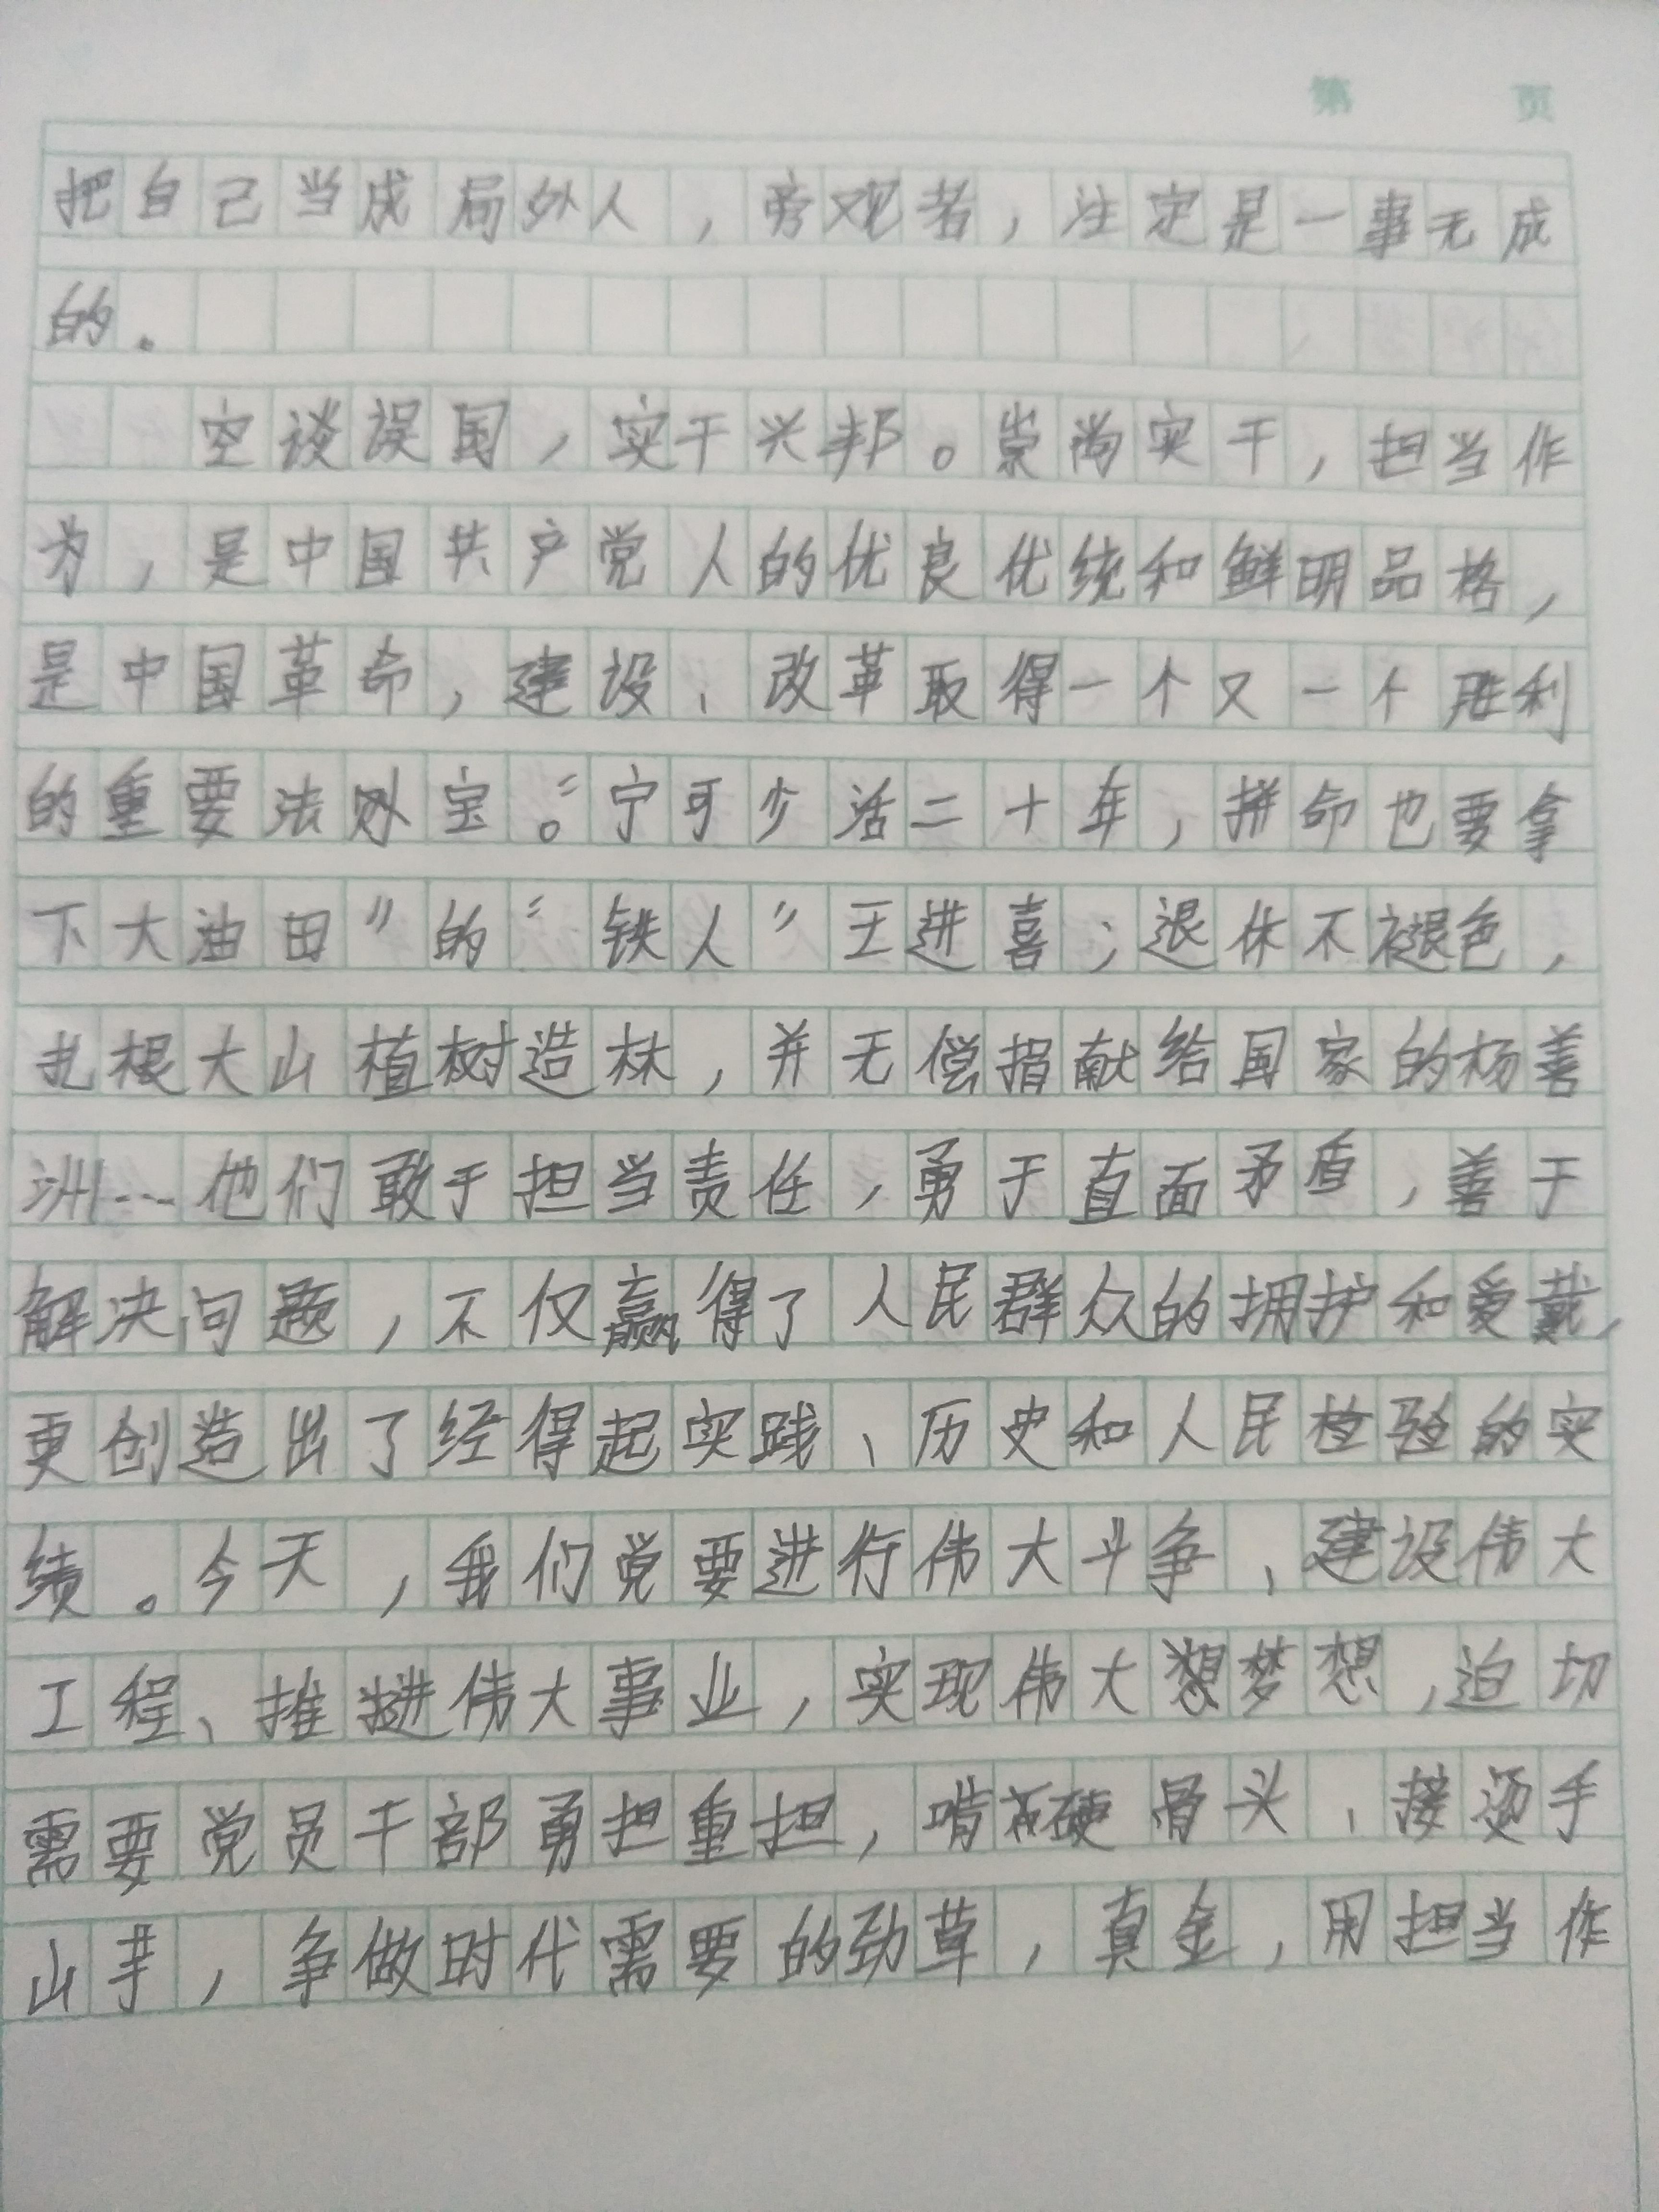 第 页
把自己当成局外人，旁观者，注定是一事无成
的。
空谈误国，实干兴邦。崇尚实干，担当作
为，是中国共产党人的优良优统和鲜明品格，
是中国革命，建设、改革取得一个又一个胜利
的重要法宝。“宁可少活二十年，拼命也要拿
下大油田”的“铁人”王进喜；退休不褪色，
扎根大山植树造林，并无偿捐献给国家的杨善
洲…他们敢于担当责任，勇于直面矛盾，善于
解决问题，不仅赢得了人民群众的拥护和爱戴，
更创造出了经得起实践、历史和人民检验的实
绩。今天，我们党要进行伟大斗争、建设伟大
工程、推进伟大事业，实现伟大梦想，迫切
需要党员干部勇担重担，啃硬骨头、接烫手
山芋，争做时代需要的劲草，真金，用担当作